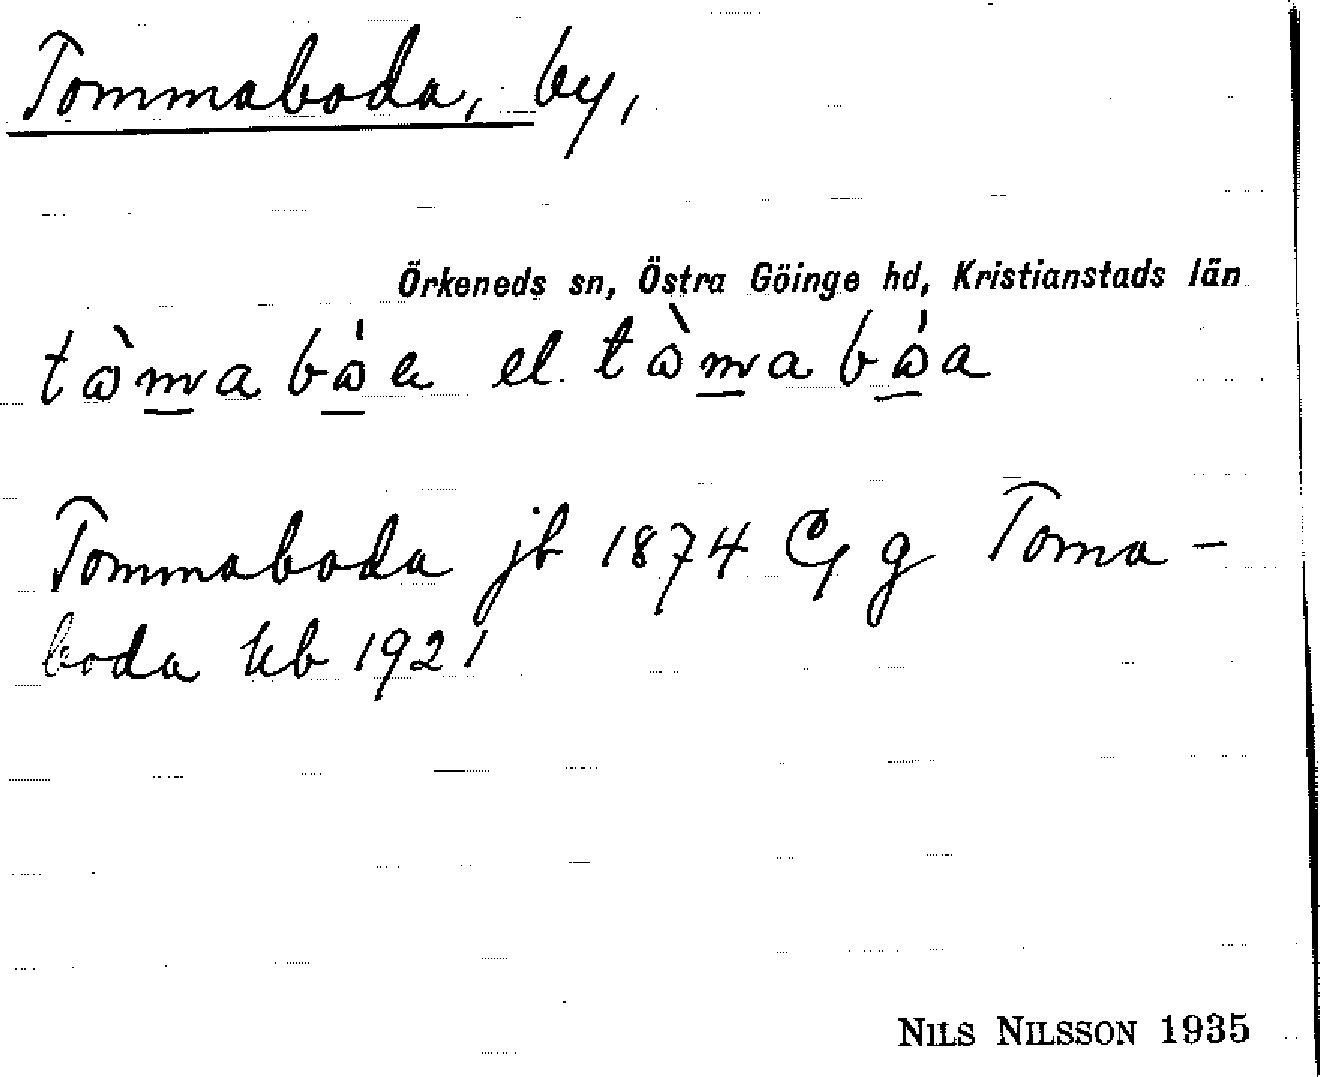 Tommaboda, by,
Örkeneds sn, Östra Göinge hd, Kristianstads län
el.
Tommaboda jb 1874 Cg g Toma-
boda kb 1921
NILS NILSSON 1935